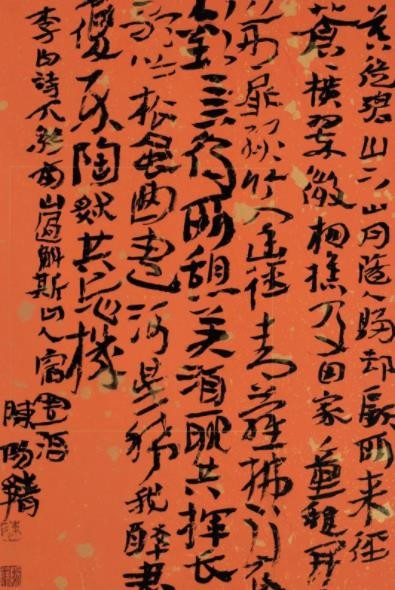 暮從碧山下山月隨人歸却顧所來徑
蒼蒼橫翠微相攜及田家童稚開
荊扉綠竹入幽徑青蘿拂行衣
歡言得所憩美酒聊共揮長
歌吟松風曲盡河星稀我醉君
復樂陶然共忘機
李白詩下終南山過斛斯山人宿置酒
陳陽